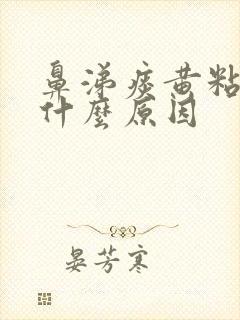 鼻涕痰黄粘
什麼原因
晏芳寒